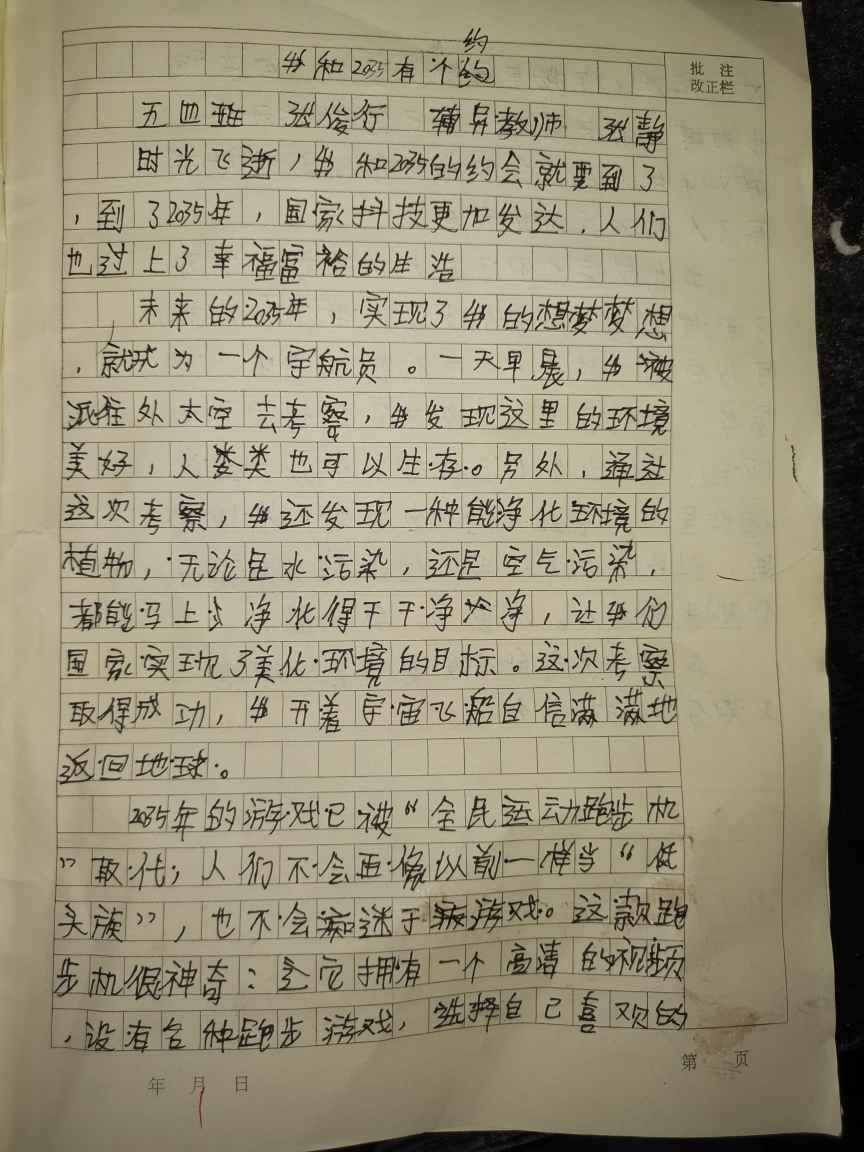 约
我和2035有个约
批注
改正栏
五四班 张俊行 辅导教师 张静
时光飞逝,我和2035的约会就要到了
,到了2035年,国家科技更加发达,人们
也过上了幸福富裕的生活
未来的2035年,实现了我的想梦梦想
,就成为一个宇航员。一天早晨,我被
派往外太空去考察,我发现这里的环境
美好,人类类也可以生存。另外,通过
这次考察,我还发现一种能净化环境的
植物,无论是水污染,还是空气污染,
都能马上净化得干干净净,让我们
国家实现了美化环境的目标。这次考察
取得成功,我开着宇宙飞船自信满满地
返回地球。
2035年的游戏已被“全民运动跑步机
”取代,人们不会再像以前一样当“低
头族”,也不会痴迷于游戏。这款跑
步机很神奇:它拥有一个高清的视频
,设有各种跑步游戏,选择自己喜欢的
年 月 日
第 页